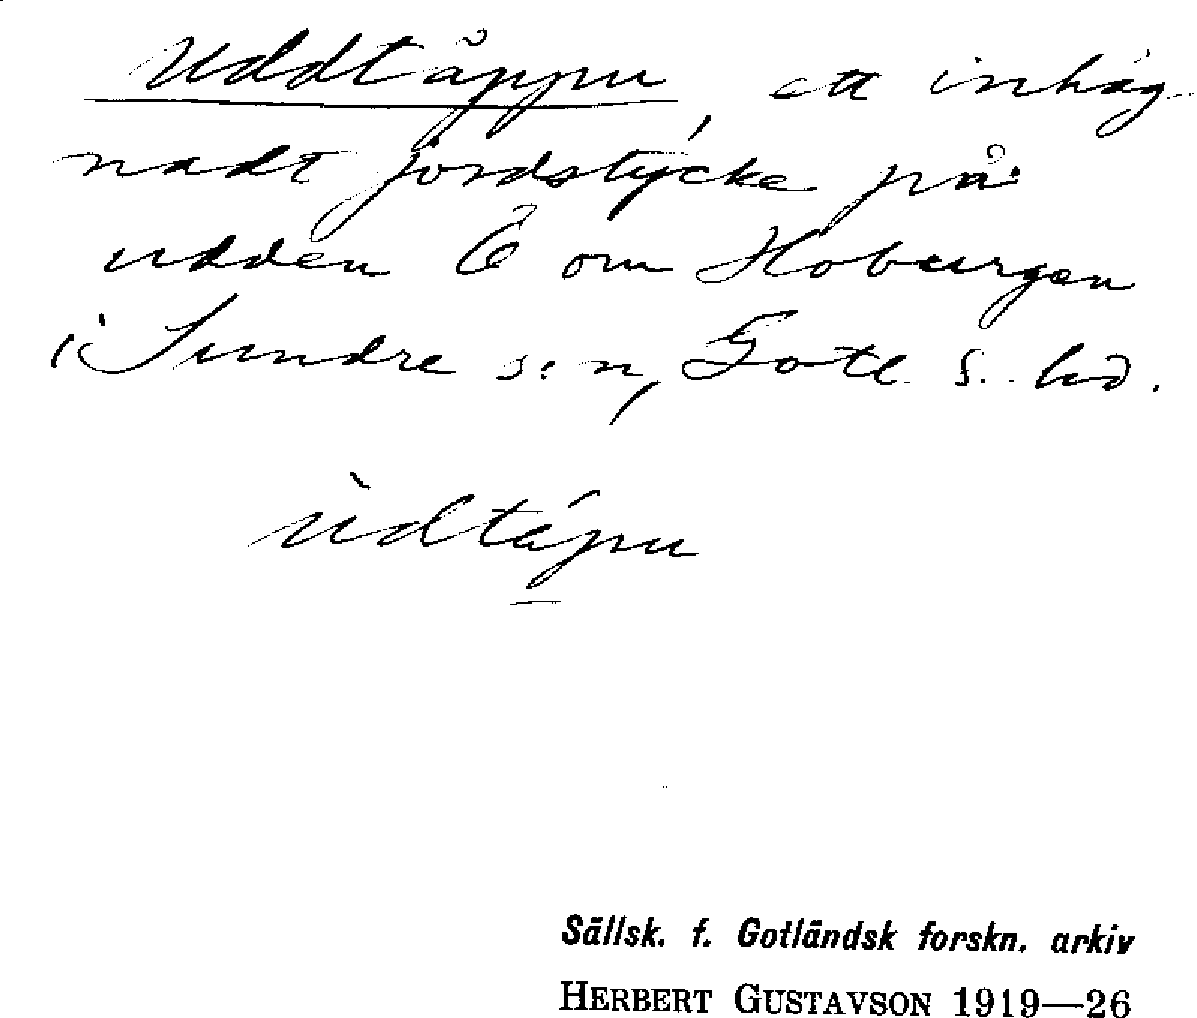 Uddtäppu, ett inhäg-
nadt jordstycke på
udden Ö om Hoburgen
i Sundre s:n, Gotl. S. hd.
ùdtápu
Sällsk. f. Gotländsk forskn. arkiv
HERBERT GUSTAVSON 1919—26